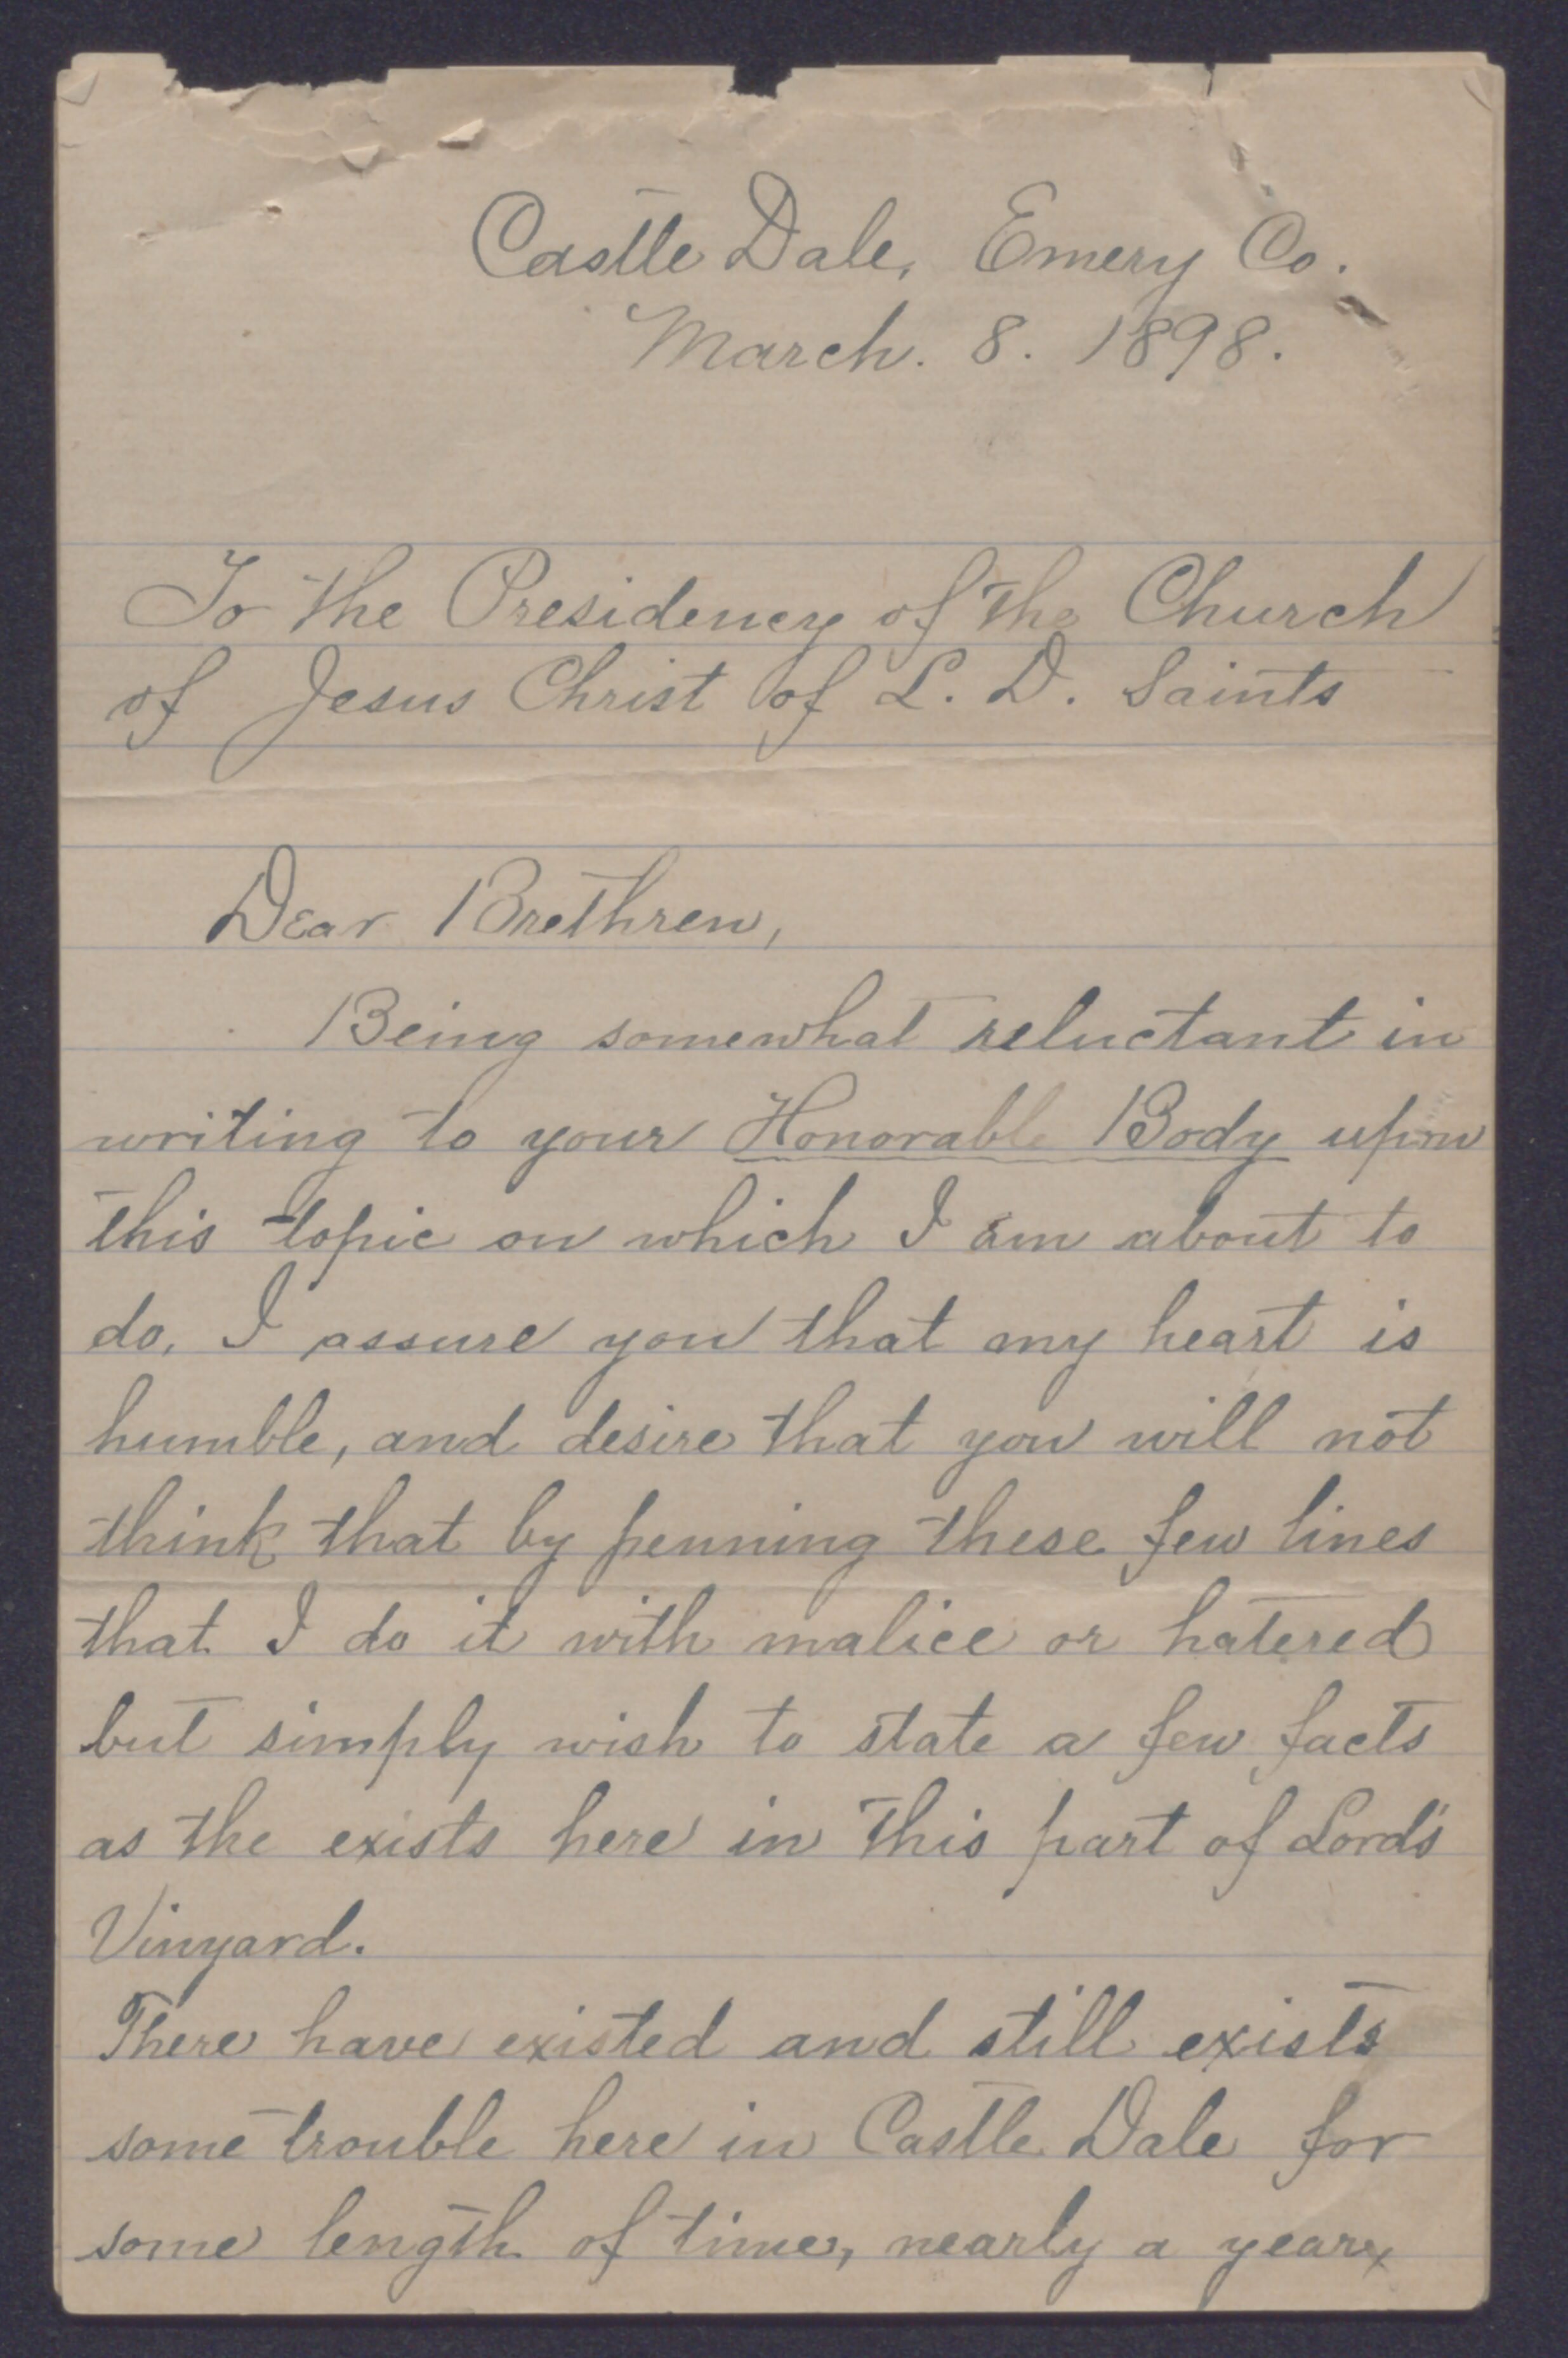 Castle Dale, Emery Co.
March. 8. 1898.
To the Presidency of the Church
of Jesus Christ of L. D. Saints
Dear Brethren,
Being somewhat reluctant in
writing to your Honorable Body upon
this topic on which I am about to
do, I assure you that my heart is
humble, and desire that you will not
think that by penning these few lines
that I do it with malice or hatered
but simply wish to state a few facts
as the exists here in this part of Lord's
Vinyard.
There have existed and still exists
some trouble here in Castle Dale for
some length of time, nearly a year,